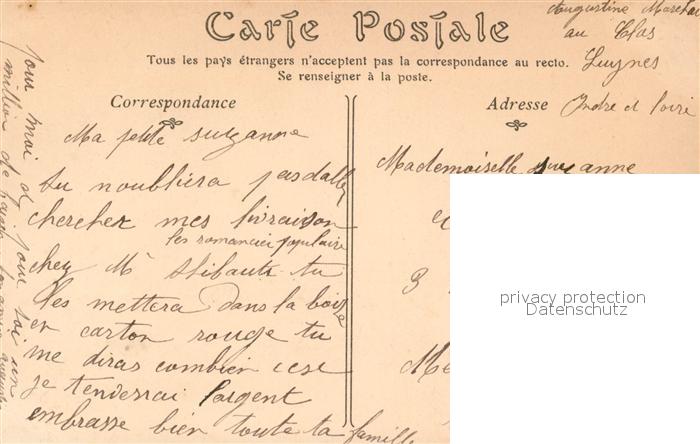 Carte Postale
Tous les pays étrangers n'acceptent pas la correspondance au recto.
Se renseigner à la poste.
Augustine
au Clos
Luynes
Indre et loire
Correspondance
Adresse
Ma petite suzanne
tu noubliera pas daller
chercher mes livraison
les romancier populaire
chez Mr thibault tu
les mettera dans la boite
en carton rouge tu
me diras combien cese
je tenverrai largent
embrasse bien toute ta famille
pour moi et pour toi un
million de
Mademoiselle suzanne
3
privacy protection
Datenschutz